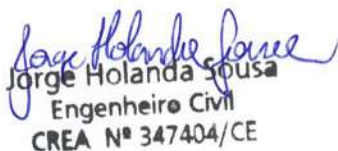 Jorge Holanda Sousa
Jorge Holanda Sousa
Engenheiro Civil
CREA Nº 347404/CE